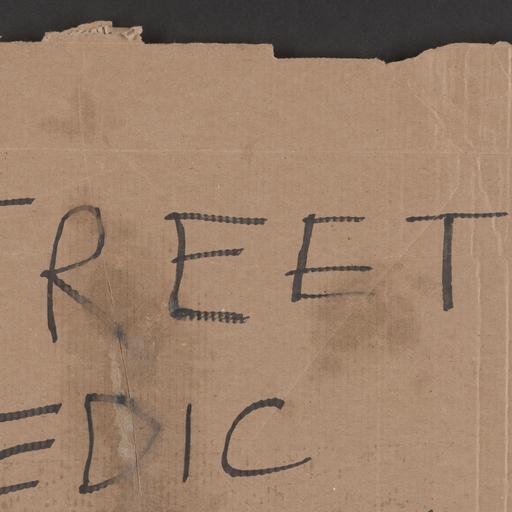 TREET
EDIC